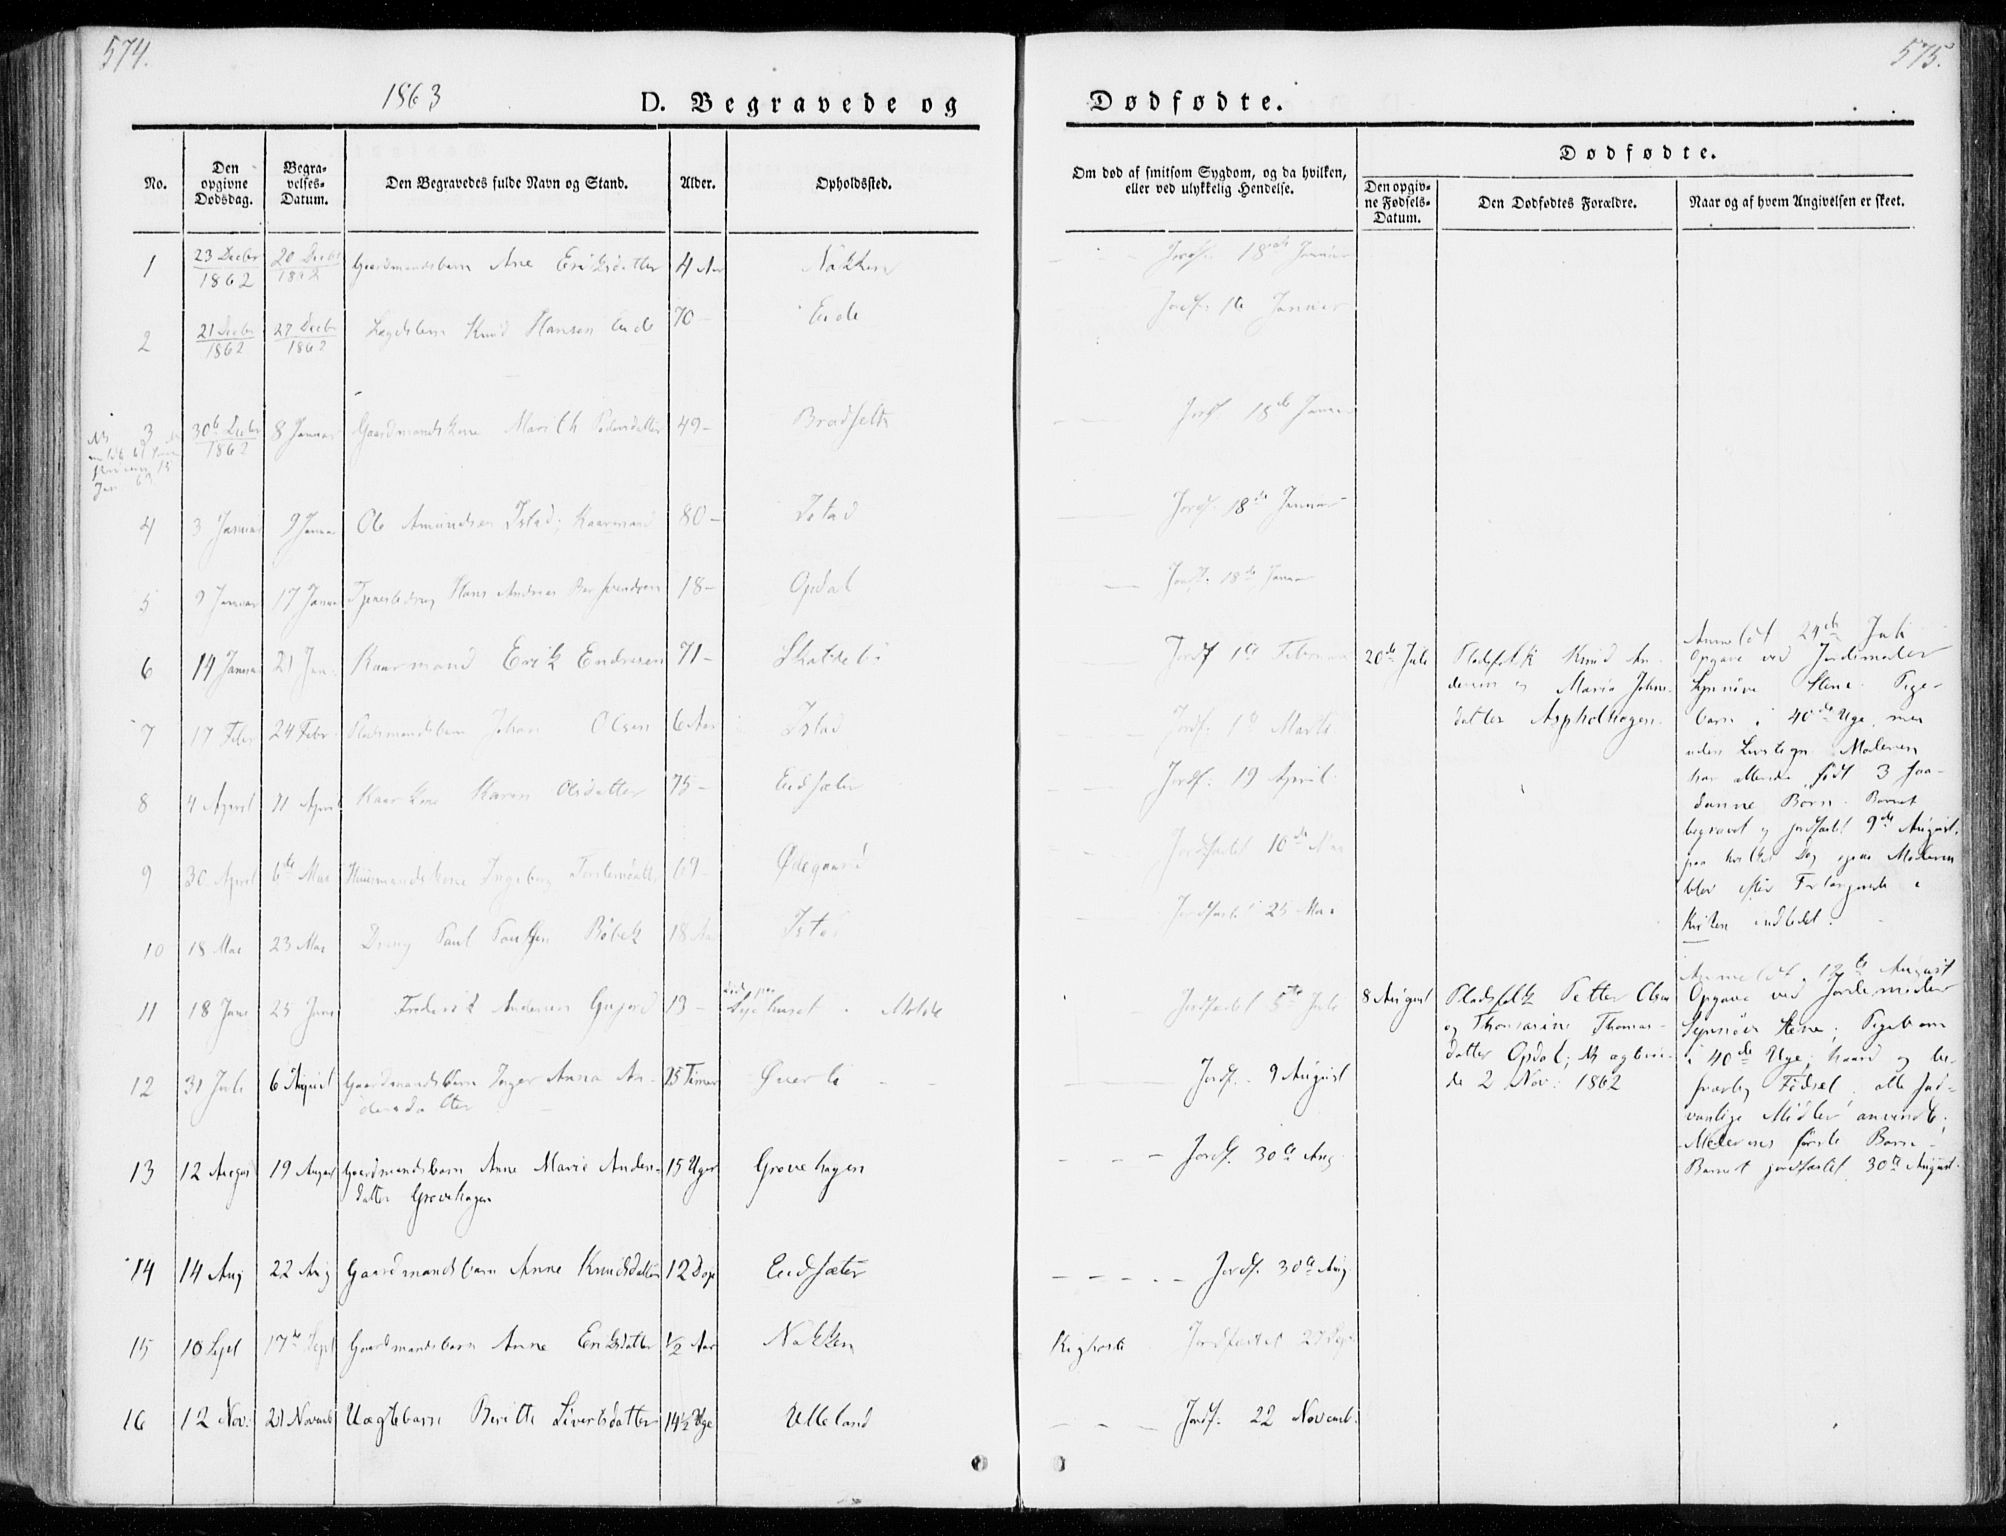 574.
575.
1863
D. Begravede og
Dødfødte.
No.
Den opgivne Dødsdag.
Begravelses-Datum.
Den Begravedes fulde Navn og Stand.
Alder.
Opholdssted.
Om død af smitsom Sygdom, og da hvilken, eller ved ulykkelig Hendelse.
Dødfødte.
Den opgivne Fødsels-Datum.
Den Dødfødtes Forældre.
Naar og af hvem Angivelsen er skeet.
1 23 Decbr 1862 Gaardmandsbarn Ane Eriksdatter 4 Aar Nakken Jordf. 18de Januar
2 21 Decbr 1862 27 Decbr 1862 Lægdslem Knud Hansen Eide 70 - Eide Jordf. Januar
3 30te Decbr 1862 8 Januar Gaardmandskone Marith Pedersdatter 49 - Jordf 18de Januar
4 3 Januar 9 Januar Ole Amundsen Istad, Kaarmand 80 - Istad Jordf. 18de Januar
5 9 Januar 17 Januar Hans Andreas 18 - Opdal Jordf. 18de Januar
6 14 Januar 21 Jan. Kaarmand Erik Endresen 71 - Jordf 1ste Februar
7 17 Febr 24 Febr. Pladsmandsbarn Johan Olsen 6 Aar Istad Jordf. Marts
8 4 April 11 April Kaarkone Karen Olsdatter 75 - Eidsæter Jordf. 19 April
9 30 April 6te Mai Huusmandskone Ingeborg 69 - Ødegaard Jordfæstet 10de Mai
10 18 Mai 23 Mai Dreng Paul Paulsen Bøbek 18 Aar Istad Jordfæstet 25 Mai
11 18 Juni 25 Juni Frederik Andersen 13 - Sygehuset i Molde Jordfæstet 5te Juli
12 31 Juli 6 August Gaardmandsbarn Inger Anna An-
dersdatter 15 Timer Øverli Jordf. 9 August
13 12 August 19 August Gaardmandsbarn Anne Marie Anders-
datter Grovehagen 15 Uger Grovehagen - - - Jordf. 30te Aug
14 14 Aug 22 Aug Gaardmandsbarn Anne Knudsdatter 12 Dage Eidsæter - - - - - Jordf. 30te Aug
15 10 Sept 17de Sept Gaardmandsbarn Anne Eriksdatter 1/2 Aar Nakken Kighoste Jordfæstet 27 Sep
16 12 Nov. 21 Novemb Uægtebarn Beritte Sivertsdatter 14 1/2 Uge Ulleland - - - Jordf. 22 Novemb.
20de Juli
Pladsfolk Knud An-
dersen og Maria Johns-
datter Aspholhagen.
Anmeldt 24de Juli
Opgave ved Jordemoder
Synnøve Stene. Pige-
barn i 40de Uge, men
uden Livstegn. Moderen
har allerede født 3 saa-
danne Børn. Barnet
begravet og jordfæstet 9de August,
paa hvilken Dag ogsaa Moderen
blev efter Forlangende i
Kirken indledet.
8 August
Pladsfolk Petter Olsen
og Thomasine Thomas-
datter Opdal,
2 Nov. 1862
Anmeldt 12te August
Opgave ved Jordemoder
Synnøve Stene; Pigebarn
i 40de Uge; haard og be-
sværlig Fødsel, alle sæd-
vanlige Midler anvendt;
Moderens første Barn -
Barnet jordfæstet 30te August.